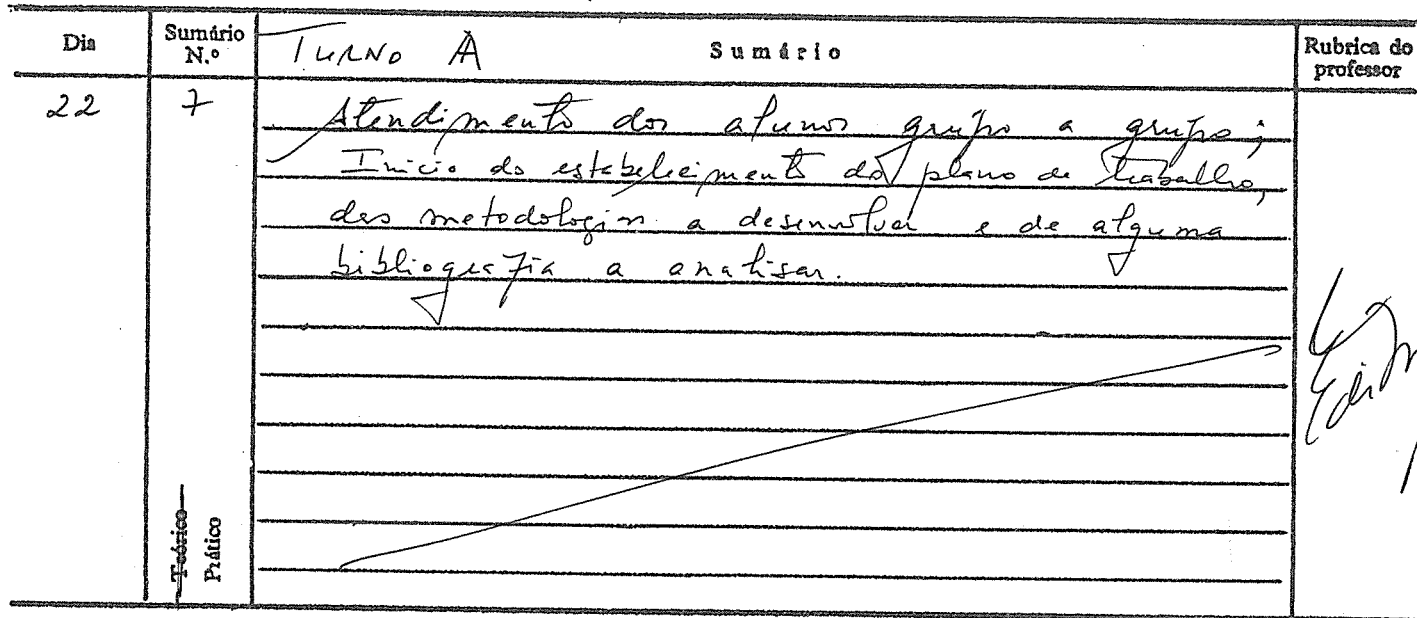 Dia Sumário N.º TURNO A Sumário Rubrica do professor
22 7 Atendimento dos alunos grupo a grupo;
Início do estabelecimento do plano de trabalho,
das metodologias a desenvolver e de alguma
bibliografia a analisar.
Teórico
Prático